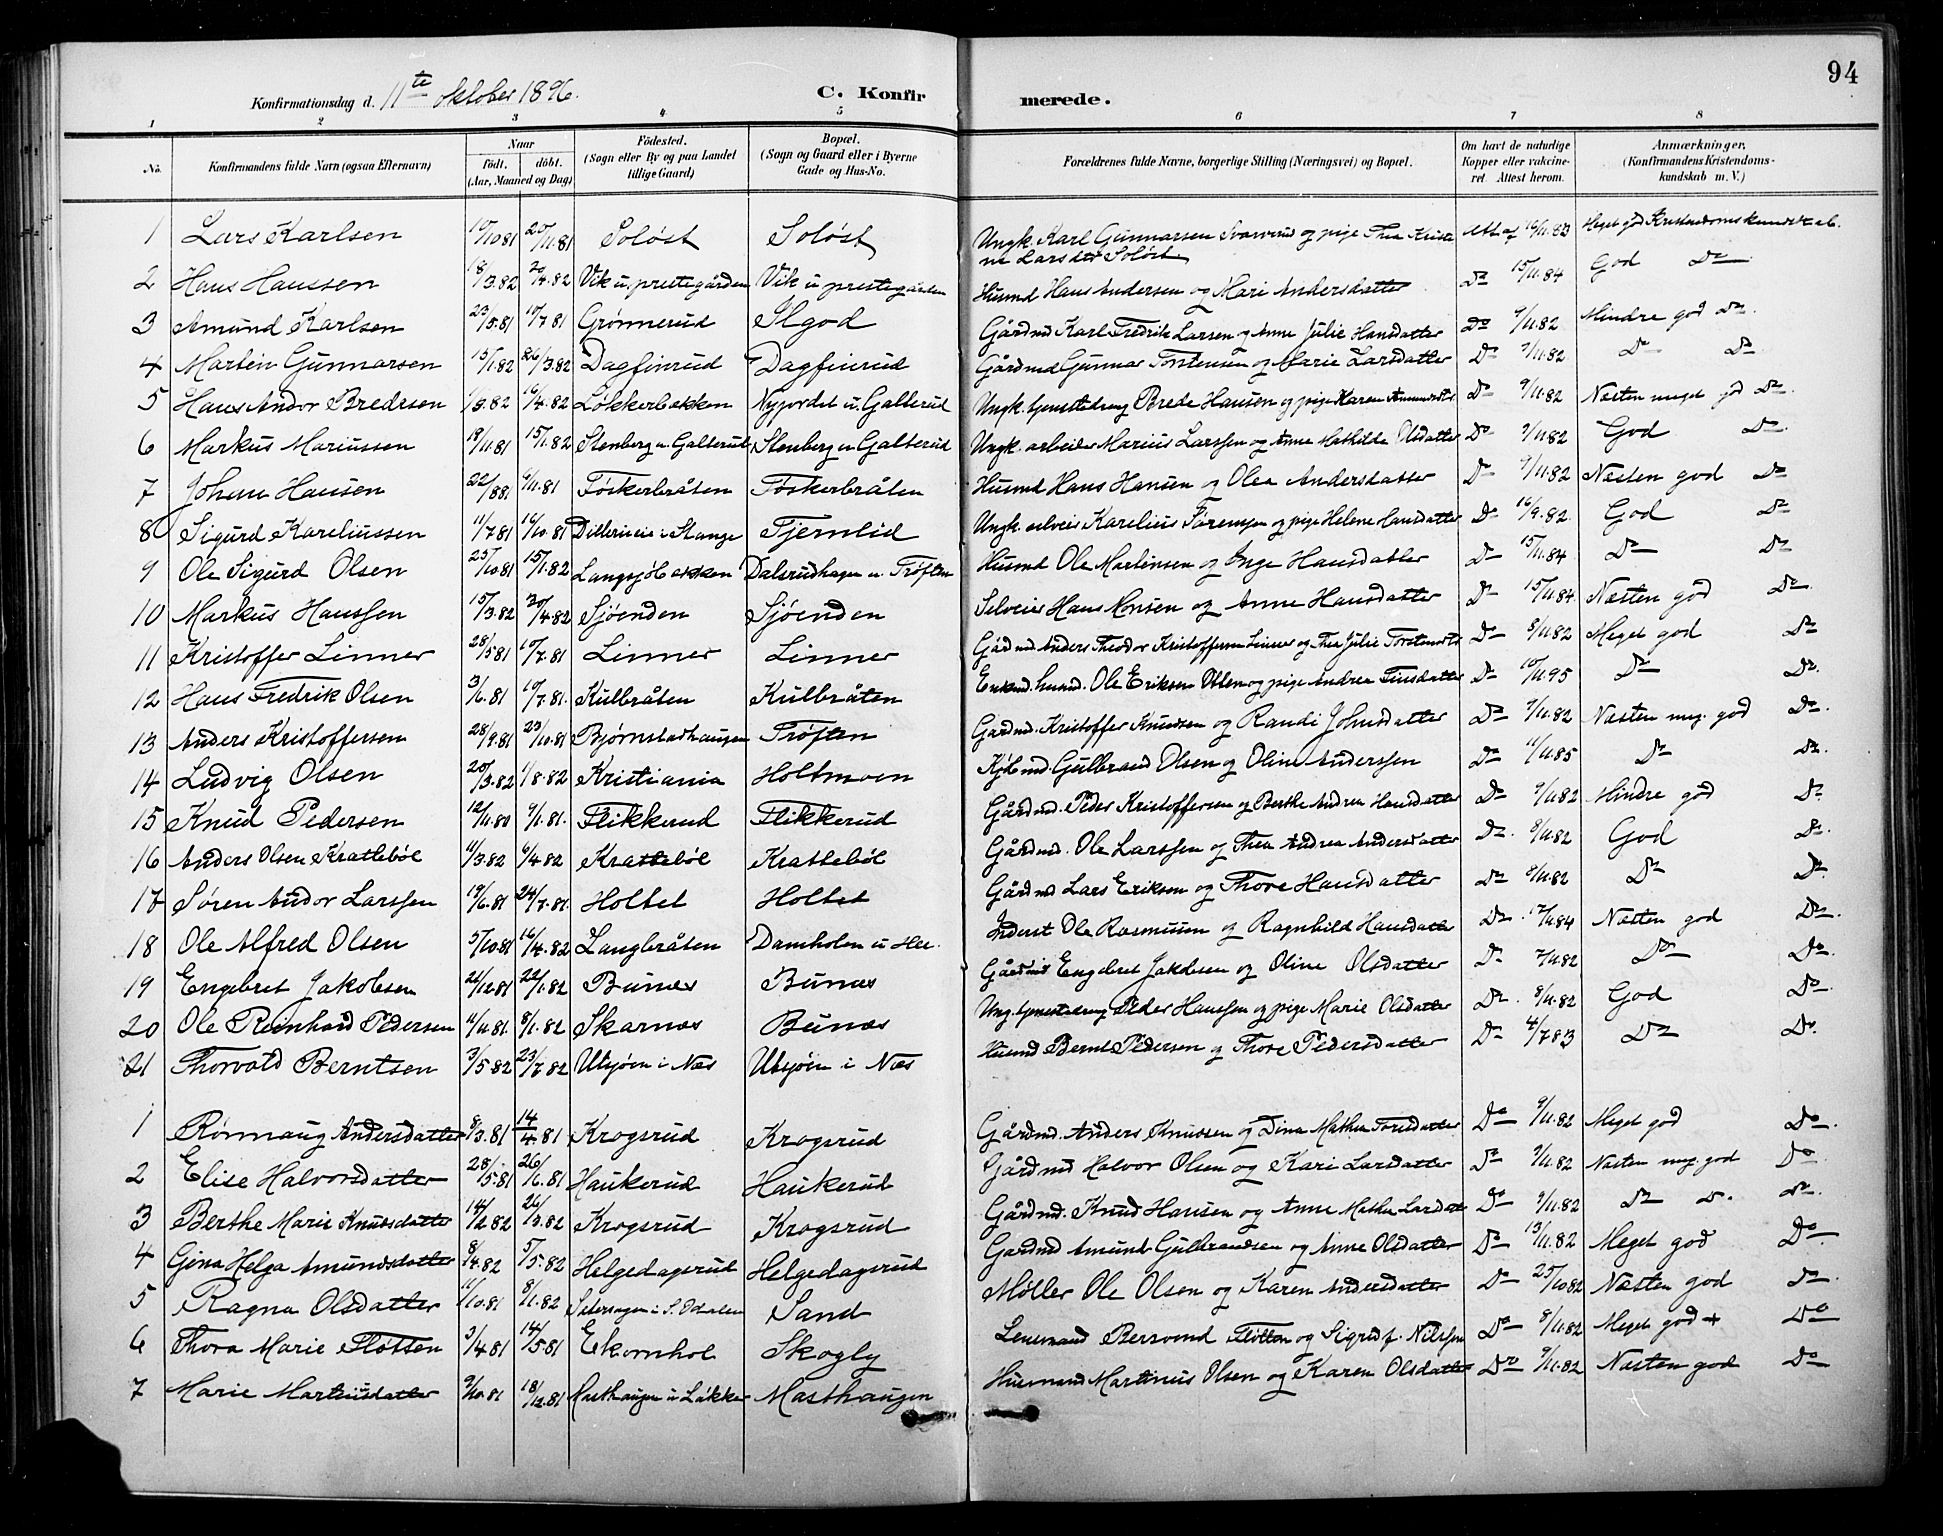 94
Konfirmationsdag d. 11te Oktober 1896. C. Konfirmerede.
1 2 3 4 5 6 7 8
No. Konfirmandens fulde Navn (ogsaa Efternavn) Naar født, døbt. (Aar, Maaned og Dag) Fødested. (Sogn eller By og paa Landet tillige Gaard) Bopæl. (Sogn og Gaard eller i Byerne Gade og Hus-No. Forældrenes fulde Navne, borgerlige Stilling (Næringsvei) og Bopæl. Om havt de naturlige Kopper eller vakcineret Attest herom. Anmærkninger, (Konfirmandens Kristendomskundskab m. V.)
1 Lars Karlsen 10/10 81 20/11.81 Soløst Soløst Ungk. Karl Gunnarsen Svarverud og pige Thea Kristine Larsdtr Soløst Att af 16/11.83 Meget god Kristendomskundskab.
2 Hans Hanssen 18/3.82 20/4.82 Vik u. prestegården Vik u prestegården Husmd Hans Andersen og Mari Andersdatter Do 15/11.84 God Do
3 Amund Karlsen 23/5.81 10/7 81 Grønnerud Ilgod Gårdmd Karl Fredrik Larsen og Anne Julie Hansdatter Do 9/11.82 Mindre god Do.
4 Martin Gunnarsen 15/1.82 26/3.82 Dagfinrud Dagfinrud Gårdmd Gunnar Torstensen og Marie Larsdatter Do 9/11.82 Do Do
5 Hans Andor Bredesen 1/3.82 16/4.82 Løkkerbakken Nyjordet u. Galterud Ungk. tjenestedreng Brede Hansen og pige Karen Amundsdtr Do 9/11.82 Næsten meget god Do.
6 Markus Mariussen 19/11.81 15/1.82 Stenberg u. Galterud Stenberg u Galterud Ungk. arbeider Marius Larssen og Anne Mathilde Olsdatter Do 9/11 82 God Do
7 Johan Hansen 22/8 81 6/11.81 Føskerbråten Føskerbråten Husmd Hans Hansen og Olea Andersdatter Do 9/11.82 Næsten god Do
8 Sigurd Kareliussen 11/7 81 16/10.81 i Stange Tjernlid Ungk. selveier Karelius Sørensen og pige Helene Hansdatter Do 16/9.82 God Do
9 Ole Sigurd Olsen 25/10 81 15/1.82 Langsjøbakken Dalsrudhagen u. Trøften Husmd Ole Martinsen og Inge Hansdatter Do 15/11.84 Do Do
10 Markus Hanssen 15/3.82 30/4.82 Sjøenden Sjøenden Selveier Hans Monsen og Anne Hansdatter Do 15/11 84 Næsten god Do.
11 Kristoffer Linner 28/5 81 10/7.81 Linner Linner Gårdmd Anders Theodor Kristoffersen Linner og Thea Julie Torstensdtr Do 8/11.82 Meget god Do
12 Hans Fredrik Olsen 3/6.81 10/7.81. Kulbråten Kulbråten Enkmd. husmd. Ole Eriksen Olsen og pige Andrea Finsdatter Do 10/11.95 Do Do.
13 Anders Kristoffersen 28/9.81 23/10.81 Bjørnstadhaugen Trøften Gårdmd. Kristoffer Knudsen og Randi Johnsdatter Do 9/11.82 Næsten meg. god Do.
14 Ludvig Olsen 20/3.82 1/8.82 Kristiania Holtmoen Kjøbmd. Gulbrand Olsen og Oline Anderssen Do 11/11.85 Do Do.
15 Knud Pedersen 12/11.80 9/1.81. Flikkerud Flikkerud Gårdmd. Peder Kristoffersen og Berthe Andrea Hansdatter Do 9/11.82 Mindre god Do
16 Anders Olsen Krattebøl 11/3.82 6/4.82 Krattebøl Krattebøl Gårdmd. Ole Larssen og Thea Andrea Andersdatter Do. 8/11.82 God Do.
17 Søren Andor Larssen 19/6.81 24/7.81. Holtet Holtet Gårdmd Lars Eriksen og Thore Hansdatter Do 8/11.82 Do Do.
18 Ole Alfred Olsen 5/10 81 16/4.82 Langbråten Damholen u Inderst Ole Rasmusen og Ragnhild Hansdatter Do. 17/11.84 Næsten god Do.
19 Engebret Jakobsen 21/12.81 22/1.82 Bunes Bunæs Gårdmd Engebret Jakobsen og Oline Olsdatter Do 7/11.82 Do Do.
20 Ole Reinhard Pedersen 11/11.81. 8/1.82 Skarnæs Bunæs Ung. tjenestedreng Peder Hanssen og pige Marie Olsdatter Do. 8/11.82 God Do.
21 Thorvald Berntsen 3/5.82 23/7.82 Utsjøen i Næs Utsjøen i Næs Husmd Bernt Pedersen og Thore Pedersdatter Do 4/7 83 Do Do.
1 Rønnaug Andersdatter 8/3.81 14/4.81 Krogsrud Krogsrud Gårdmd. Anders Knudsen og Dina Mathea Toresdatter Do 9/11.82 Meget god Do.
2 Elise Halvorsdatter 28/5.81 26/6.81 Haukerud Haukerud Gårdmd Halvor Olsen og Kari Larsdatter Do 9/11.82 Næsten meg. god Do
3 Berthe Marie Knudsdatter 14/2 82 26/3.82 Krogsrud Krogsrud Gårdmd. Knud Hansen og Anne Mathea Larsdatter Do 9/11.82 Do Do. Do.
4 Gina Helga Amundsdatter 8/4.82 5/5.82 Helgedagsrud Helgedagsrud Gårdmd Amund Gulbrandsen og Anne Olsdatter Do 13/11.82 Meget god Do.
5 Ragna Olsdatter 11/10.81 8/1.82 i S. Odalen Sand Møller Ole Olsen og Karen Andersdatter Do 25/10 82 Næsten god Do.
6 Thora Marie Fløtten 3/4.81 14/5.81 Ekornhol Skogly Lensmand Bersvend Fløtten og Sigrid f. Nilssen Do 8/11.82 Meget god + Do
7 Marie Martinusdatter 9/10.81 18/12.81 Masthaugen u Løkker Masthaugen Husmand Martinus Olsen og Karen Olsdatter Do 9/11.82 Næsten god Do